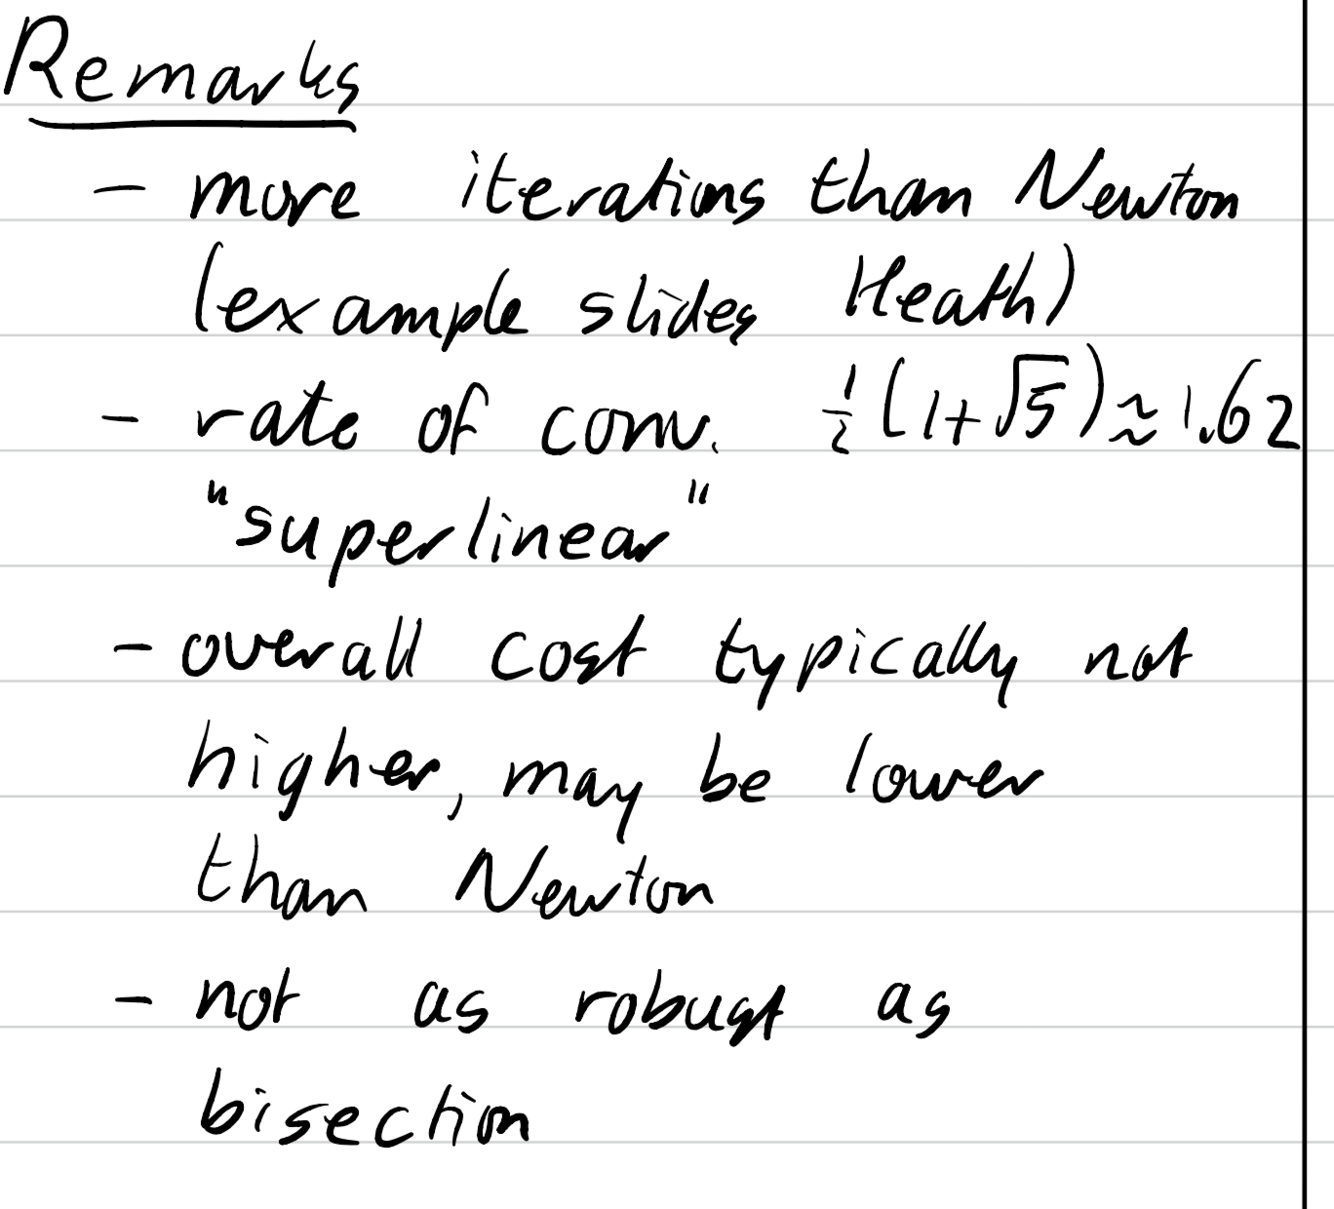 Remarks
- more iterations than Newton
(example slides Heath)
- rate of conv. ½(1+√5)≈1.62
"superlinear"
- overall cost typically not
higher, may be lower
than Newton
- not as robust as
bisection